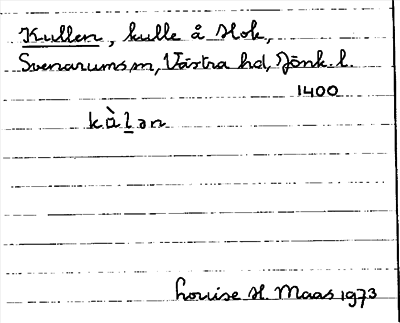 Kullen, kulle å Hok,
Svenarums sn, Västra hd, Jönk. l.
1400
kùl̲ən
Louise H. Maas 1973